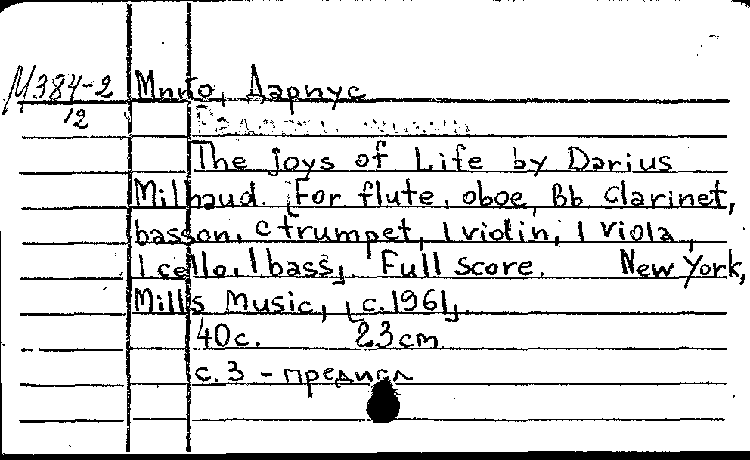 М384-2 Мийо, Дариус
12
Радости жизни
The joys of Life by Darius
Milhaud. [For flute, oboe, Bb clarinet,
basson, c trumpet, 1 violin, 1 viola,
1 cello, 1 bass]. Full score. New York,
Mills Music, [c.1961].
40с. 23cm
с. 3 - предисл